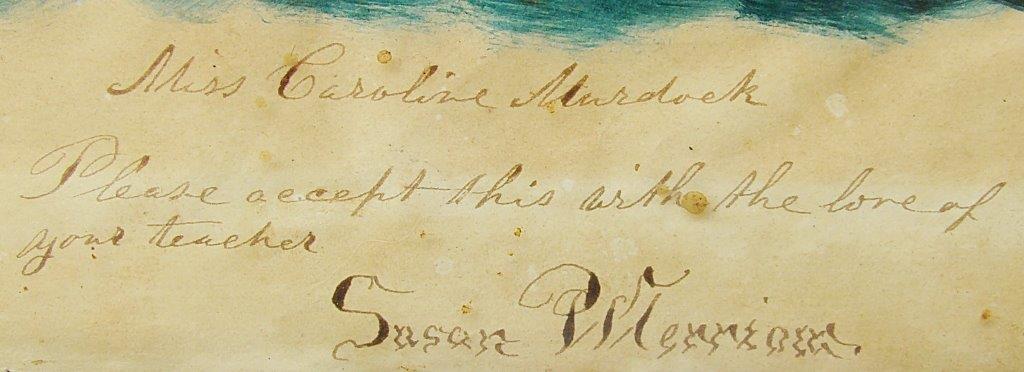 Miss Caroline Murdock
Please accept this with the love of
your teacher
Susan P Merriam.